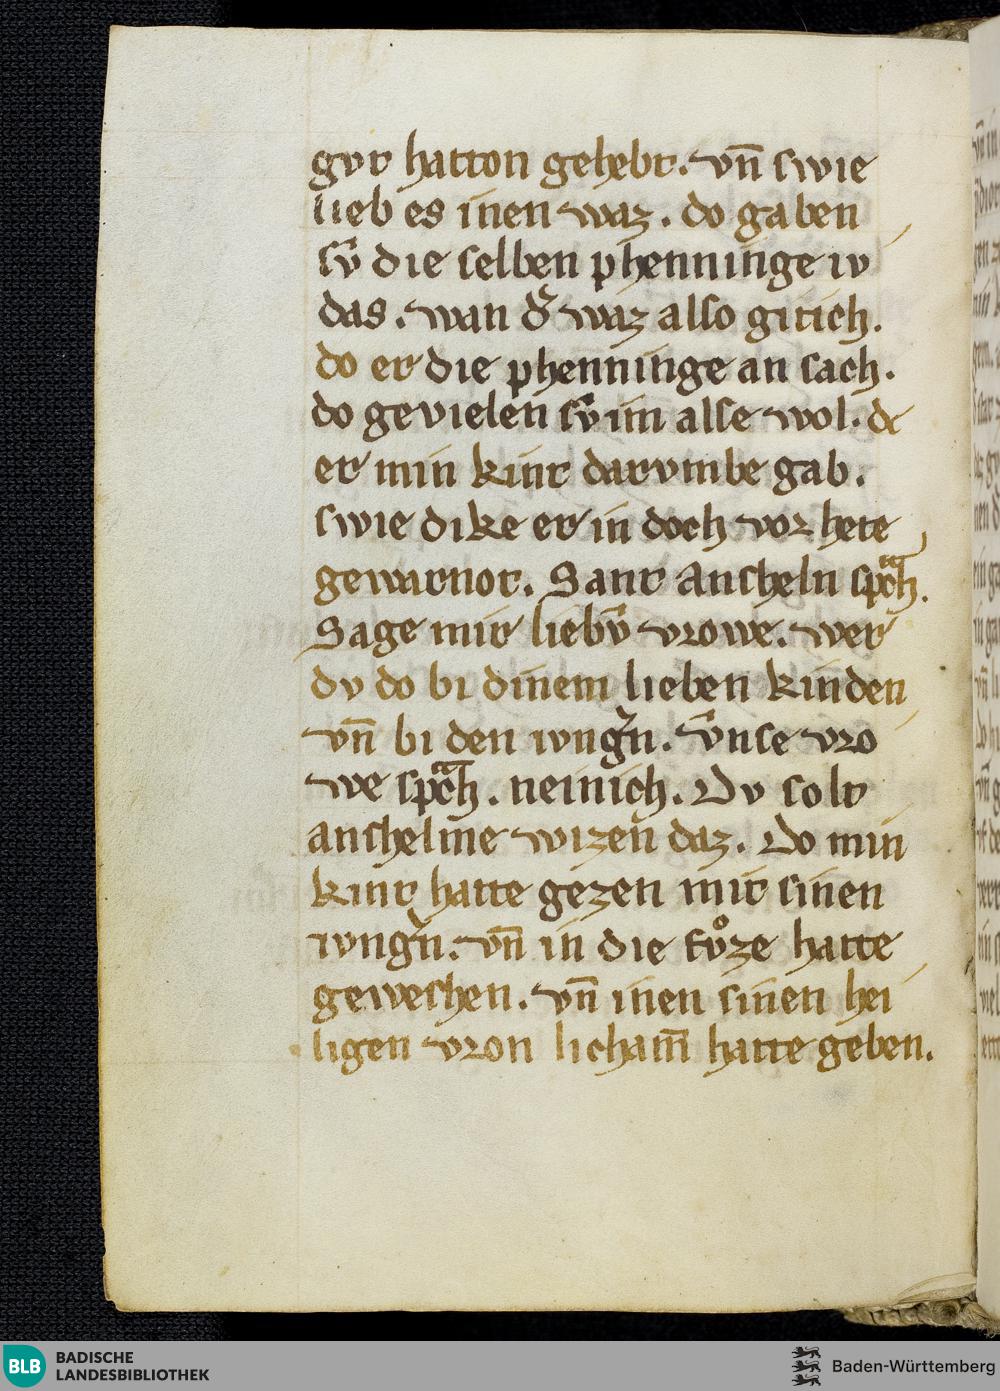 gvt hatton gehebt. vn̄ swie
lieb es inen waz. do gaben
sv̍ die selben phenninge iv
das. wan d͛ waz also gitich.
do er die phenninge an sach.
do gevielen sv̍ im alse wol. dc
er min kint darvmbe gab.
swie dike er in doch vor hete
gewarnot. Sant Ancheln spͣch.
Sage mir liebv̍ vrowe. wer
dv do bi dinem lieben kinden
vn̄ bi den ivng͛n. v̍nse vro
we spͣch. nein ich. Dv solt
anshelme wizen daz. Do min
kint hatte gezen mit sinen
ivng͛n. vn̄ in die fvͦze hatte
geweschen. vn̄ inen sinen hei
ligen vron licham̄ hatte geben.
BLB BADISCHE
LANDESBIBLIOTHEK
Baden-Württemberg